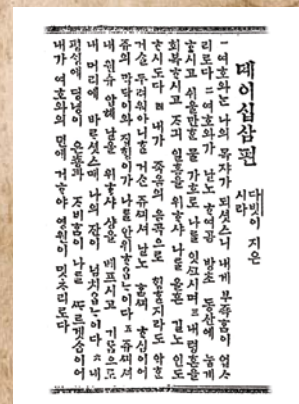 뎨이십삼편
다빗이 지은
시라
一여호와는 나의 목쟈가 되셧스니 내게 부족홈이 업스
리로다 二여호와가 날노 ᄒᆞ여곰 방초 동산에 눕게
ᄒᆞ시고 쉬올만ᄒᆞᆫ 물 가흐로 나를 잇ᄭᅳ시며 三내 령혼을
회복ᄒᆞ시고 ᄌᆞ긔 일홈을 위ᄒᆞ샤 나를 올흔 길노 인도
ᄒᆞ시도다 四내가 죽음의 음곡으로 힝ᄒᆞᆯ지라도 악ᄒᆞᆫ
거슬 두려워아니ᄒᆞᆯ거슨 쥬ᄭᅴ셔 날노 홈ᄭᅴ ᄒᆞ심이어
쥬의 막닥이와 집힝이가 나를 안위ᄒᆞᄋᆞᆸᄂᆞ이다 五쥬ᄭᅴ셔
내 원슈 압헤 날을 위ᄒᆞ샤 상을 베프시고 기름으로
내 머리에 바르셧스매 나의 잔이 넘치ᄋᆞᆸᄂᆞ이다 六내
평ᄉᆡᆼ에 뎡녕이 은툥과 ᄌᆞ비홈이 나를 ᄯᆞ르겟ᄉᆞᆷ이어
내가 여호와의 뎐에 거ᄒᆞ야 영원이 밋ᄎᆞ리로다